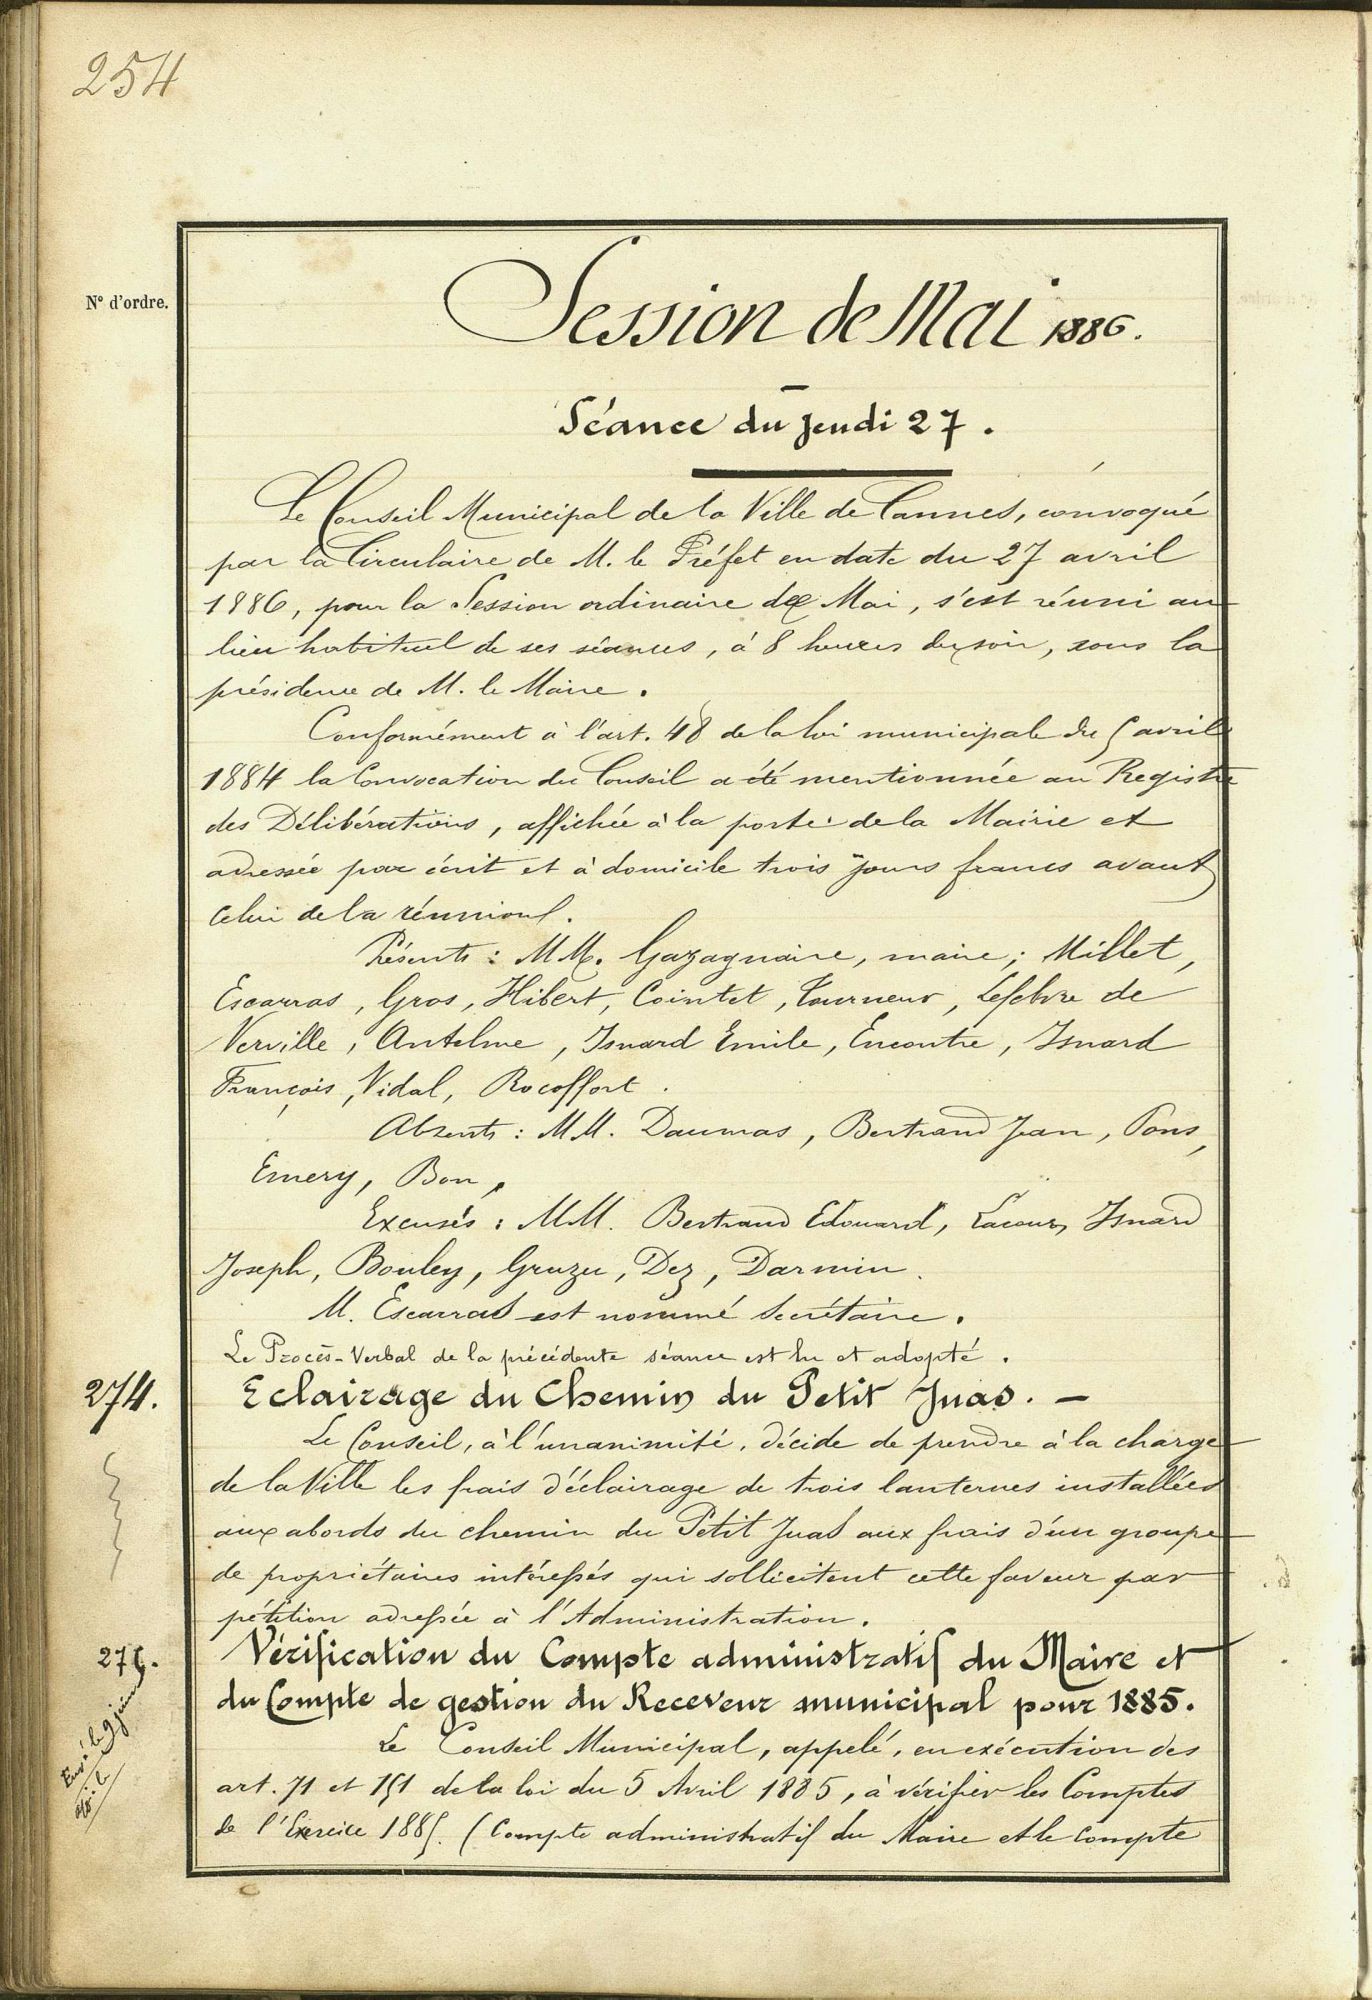 254
N° d'ordre.
Session de Mai 1886.
Séance du Jeudi 27.
Le Conseil Municipal de la Ville de Cannes, convoqué
par la Circulaire de M. le Préfet en date du 27 avril
1886, pour la Session ordinaire de Mai, s'est réuni au
lieu habituel de ses séances, à 8 heures du soir, sous la
présidence de M. le Maire.
Conformément à l'art. 48 de la loi municipale du 5 avril
1884 la Convocation du Conseil a été mentionnée au Registre
des Délibérations, affichée à la porte de la Mairie et
adressée par écrit et à domicile trois jours francs avant
celui de la réunion.
Présents : MM. Gazagnaire, maire; Millet,
Escarras, Gros, Hibert, Cointet, Tourneur, Lefebvre de
Verville, Anthelme, Isnard Emile, Encontre, Isnard
François, Vidal, Rocoffort.
Absents : MM. Daumas, Bertrand Jean, Pons,
Emery, Bon.
Excusés : MM. Bertrand Edouard, Lacour, Isnard
Joseph, Bouley, Gruzu, Dez, Darmin.
M. Escarras est nommé Secrétaire.
Le Procès-Verbal de la précédente séance est lu et adopté.
274. Eclairage du Chemin du Petit Juas. —
Le Conseil, à l'unanimité, décide de prendre à la charge
de la Ville les frais d'éclairage de trois lanternes installées
aux abords du chemin du Petit Juas aux frais d'un groupe
de propriétaires intéressés qui sollicitent cette faveur par
pétition adressée à l'Administration.
275. Vérification du Compte administratif du Maire et
du Compte de gestion du Receveur municipal pour 1885.
Envoi le 9 juin
Le Conseil Municipal, appelé, en exécution des
art. 71 et 151 de la loi du 5 Avril 1885, à vérifier les Comptes
de l'Exercice 1885. (Compte administratif du Maire et le Compte